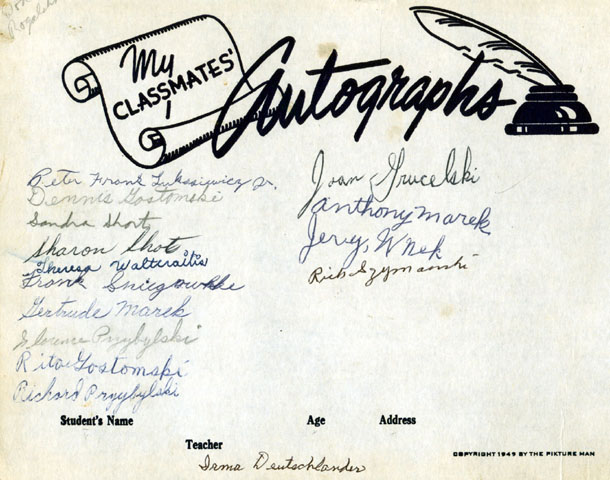 My
CLASSMATES'
Autographs
Peter Frank Luksiewicz Jr.
Dennis Gostomski
Sandra Short
Sharon Shots
Theresa Walteraitis
Frank
Gertrude Marek
Florence Przybylski
Rita Gostomski
Richard Przybylski
Joan Grucelski
Anthony Marek
Jerry Wnek
Rich Szymanski
Student's Name Age Address
Teacher
Irma Deutschlander
COPYRIGHT 1949 BY THE PIKTURE MAN